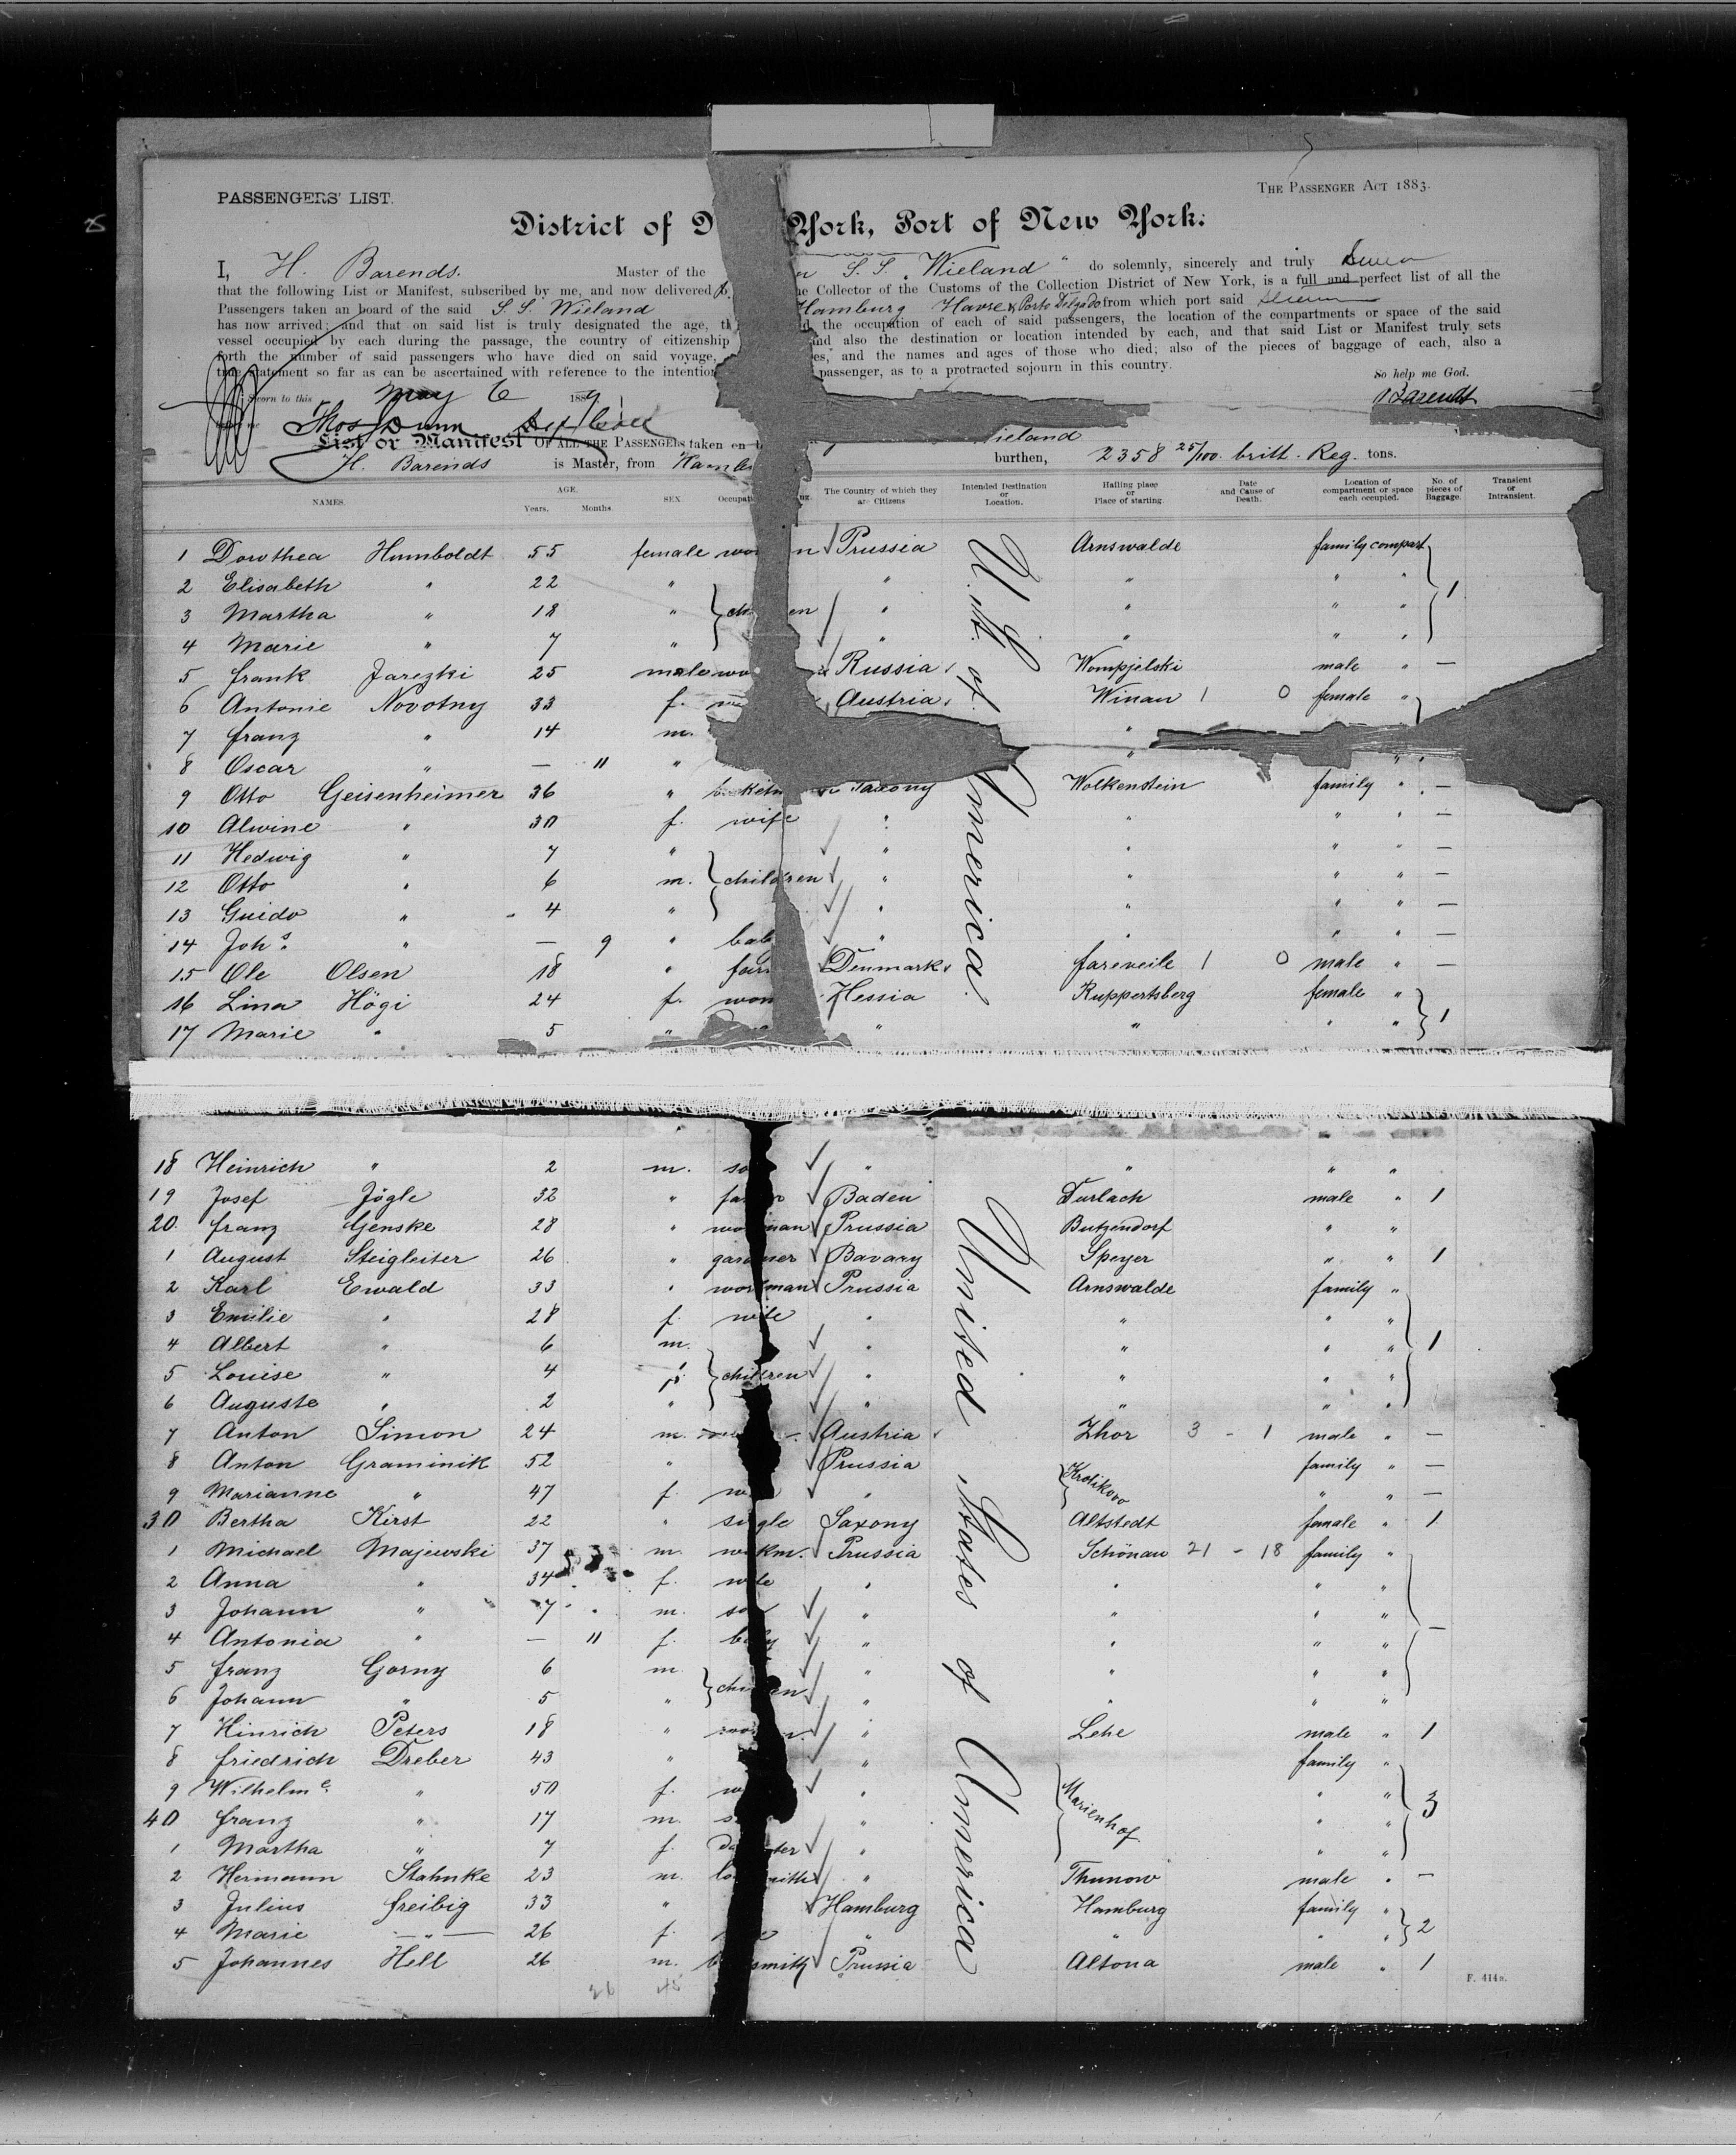 PASSENGERS' LIST.
THE PASSENGER ACT 1883.
District of N York, Port of New York:
I, H. Barends. Master of the S. S. "Wieland" do solemnly, sincerely and truly
that the following List or Manifest, subscribed by me, and now delivered he Collector of the Customs of the Collection District of New York, is a full and perfect list of all the
Passengers taken on board of the said S. S. Wieland Hamburg Havre & Porto Delgado from which port said
has now arrived; and that on said list is truly designated the age, th d the occupation of each of said passengers, the location of the compartments or space of the said
vessel occupied by each during the passage, the country of citizenship and also the destination or location intended by each, and that said List or Manifest truly sets
forth the number of said passengers who have died on said voyage, es, and the names and ages of those who died; also of the pieces of baggage of each, also a
true statement so far as can be ascertained with reference to the intention passenger, as to a protracted sojourn in this country.
So help me God.
Sworn to this May 6 188 Barends
Thos Dunn
List or Manifest OF ALL THE PASSENGERS taken on Wieland
H. Barends is Master, from Hamb burthen, 2358 25/100. britt. Reg. tons.
NAMES. AGE. Years. Months. SEX. Occupati The Country of which they are Citizens Intended Destination or Location. Hailing place or Place of starting. Date and Cause of Death. Location of compartment or space each occupied. No. of pieces of Baggage. Transient or Intransient.
1 Dorothea Humboldt 55 female wo n Prussia Arnswalde family compart
2 Elisabeth " 22 " " " " "
3 Martha " 18 " ch en " " " " 1
4 Marie " 7 " " " " "
5 Frank Jarezki 25 male wo Russia Wompjelski male " —
6 Antonie Novotny 33 f. Austria Winau 1 0 female "
7 Franz " 14 m. "
8 Oscar " — 11 " " " "
9 Otto Geisenheimer 36 " Saxony Wolkenstein family " —
10 Alwine " 30 f. wife " " " " —
11 Hedwig " 7 " " " " " —
12 Otto " 6 m. children " " " " —
13 Guido " 4 " " " " " —
14 Johs. " — 9 " bab " " " " —
15 Ole Olsen 18 " far Denmark fareveile 1 0 male " —
16 Lina Högi 24 f. wom Hessia Ruppertsberg female "
17 Marie " 5 " " " " " 1
18 Heinrich " 2 m. so " " " "
19 Josef Jögle 32 " fa Baden Durlach male " 1
20. Franz Genske 28 " wo man Prussia Butzendorf " "
1 August Steigleiter 26 " gardner Bavary Speyer " " 1
2 Karl Ewald 33 " workman Prussia Arnswalde family "
3 Emilie " 28 f. wife " " " "
4 Albert " 6 m. " " " " 1
5 Louise " 4 f. children " " " "
6 Auguste " 2 " " " " "
7 Anton Simon 24 m. Austria Zhor 3 - 1 male " —
8 Anton Graminik 52 " Prussia Krolikovo family " —
9 Marianne " 47 f. " " " —
30 Bertha Kirst 22 " single Saxony Altstedt female " 1
1 Michael Majewski 37 m. workm. Prussia Schönau 21 - 18 family "
2 Anna " 34 f. wife " " " "
3 Johann " 7 m. so " " " "
4 Antonia " — 11 f. baby " " " " —
5 Franz Gorny 6 m. " " " "
6 Johann " 5 " children " " " "
7 Hinrich Peters 18 " " Lehe male " 1
8 Friedrich Dreber 43 " " family "
9 Wilhelme. " 50 f. " Marienhof " " 3
40 Franz " 17 m. " " "
1 Martha " 7 f. da ter " " "
2 Hermann Stahnke 23 m. lo smith " Thunow male " —
3 Julius Freibig 33 " Hamburg Hamburg family "
4 Marie " 26 f. " " " " 2
5 Johannes Hell 26 m. smith Prussia Altona male " 1
U. St. of America.
United States of America
F. 414a.